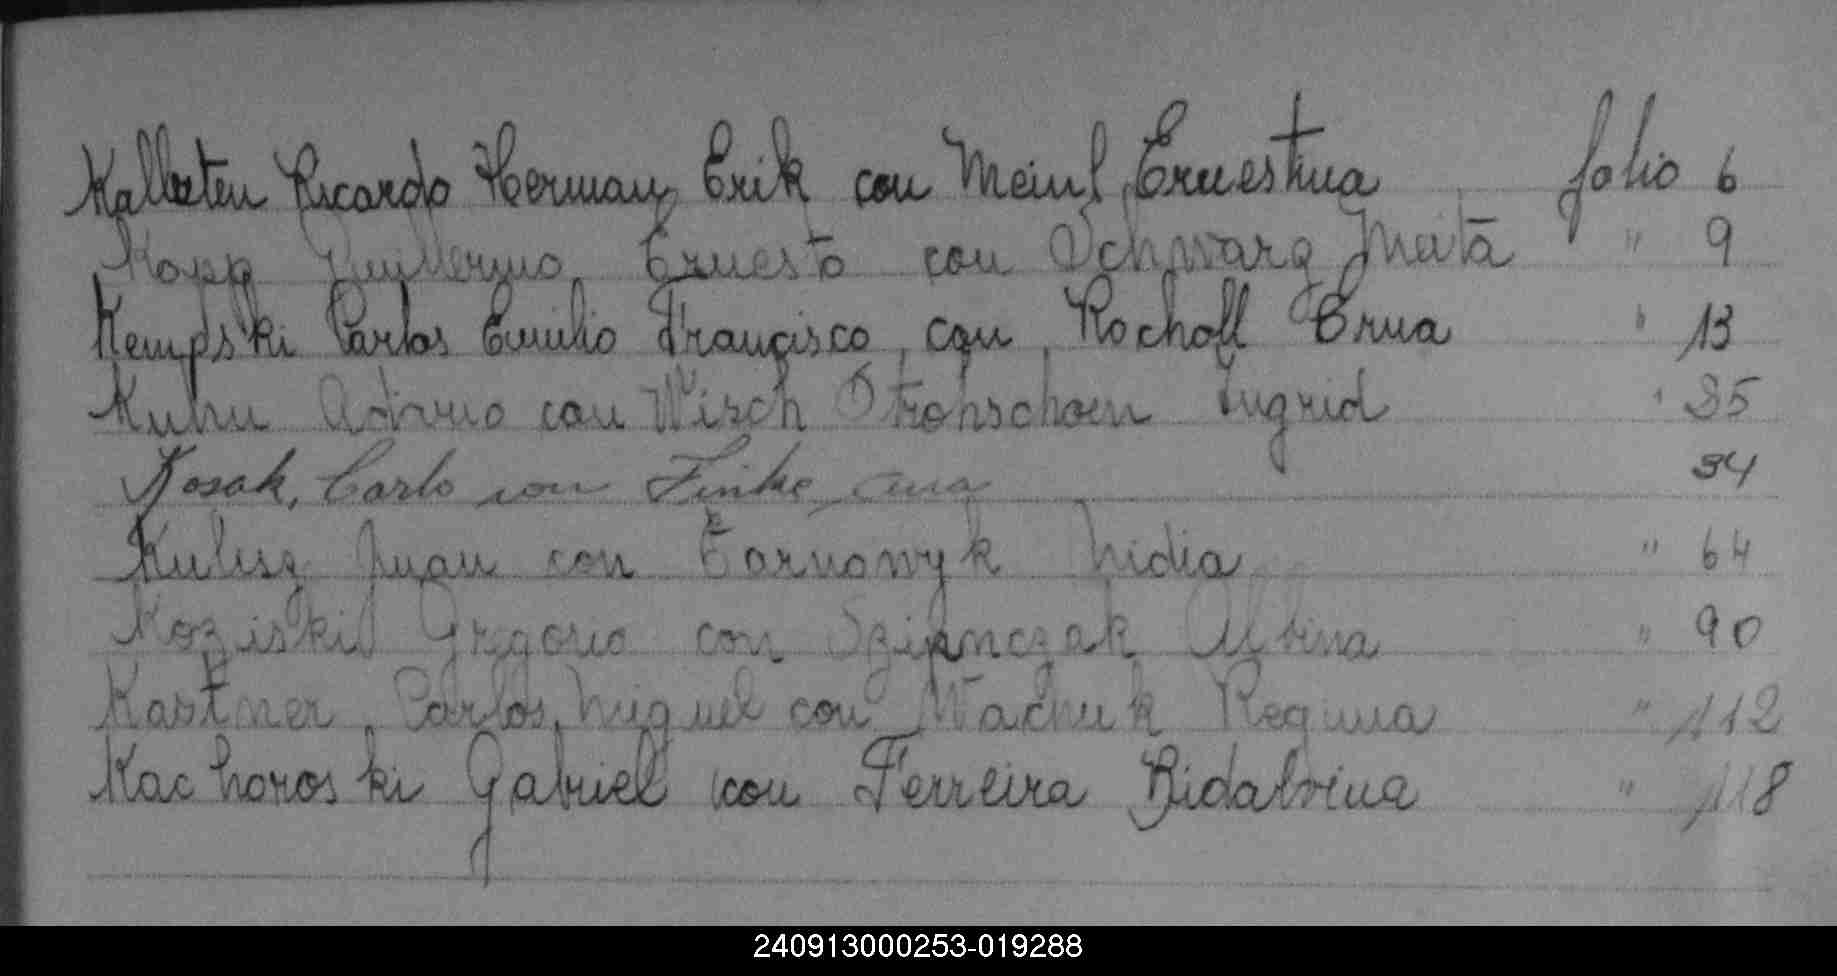 Kallsten Ricardo Herman Erik con Meinl Ernestina folio 6
Kopp Guillermo Ernesto con Schwarz Meita " 9
Kempski Carlos Emilio Francisco con Rochholl Erna " 13
Kuhn Adamo con Wisch Strohschoen Ingrid " 35
Kosak, Carlo con Finke 34
Kulisz Juan con Tarnowyk Lidia " 64
Koziski Gregorio con Szipnczak Albina " 90
Kastner Carlos Miguel con Wachuk Regina " 112
Kachoroski Gabriel con Ferreira Bidalvina " 118
240913000253-019288